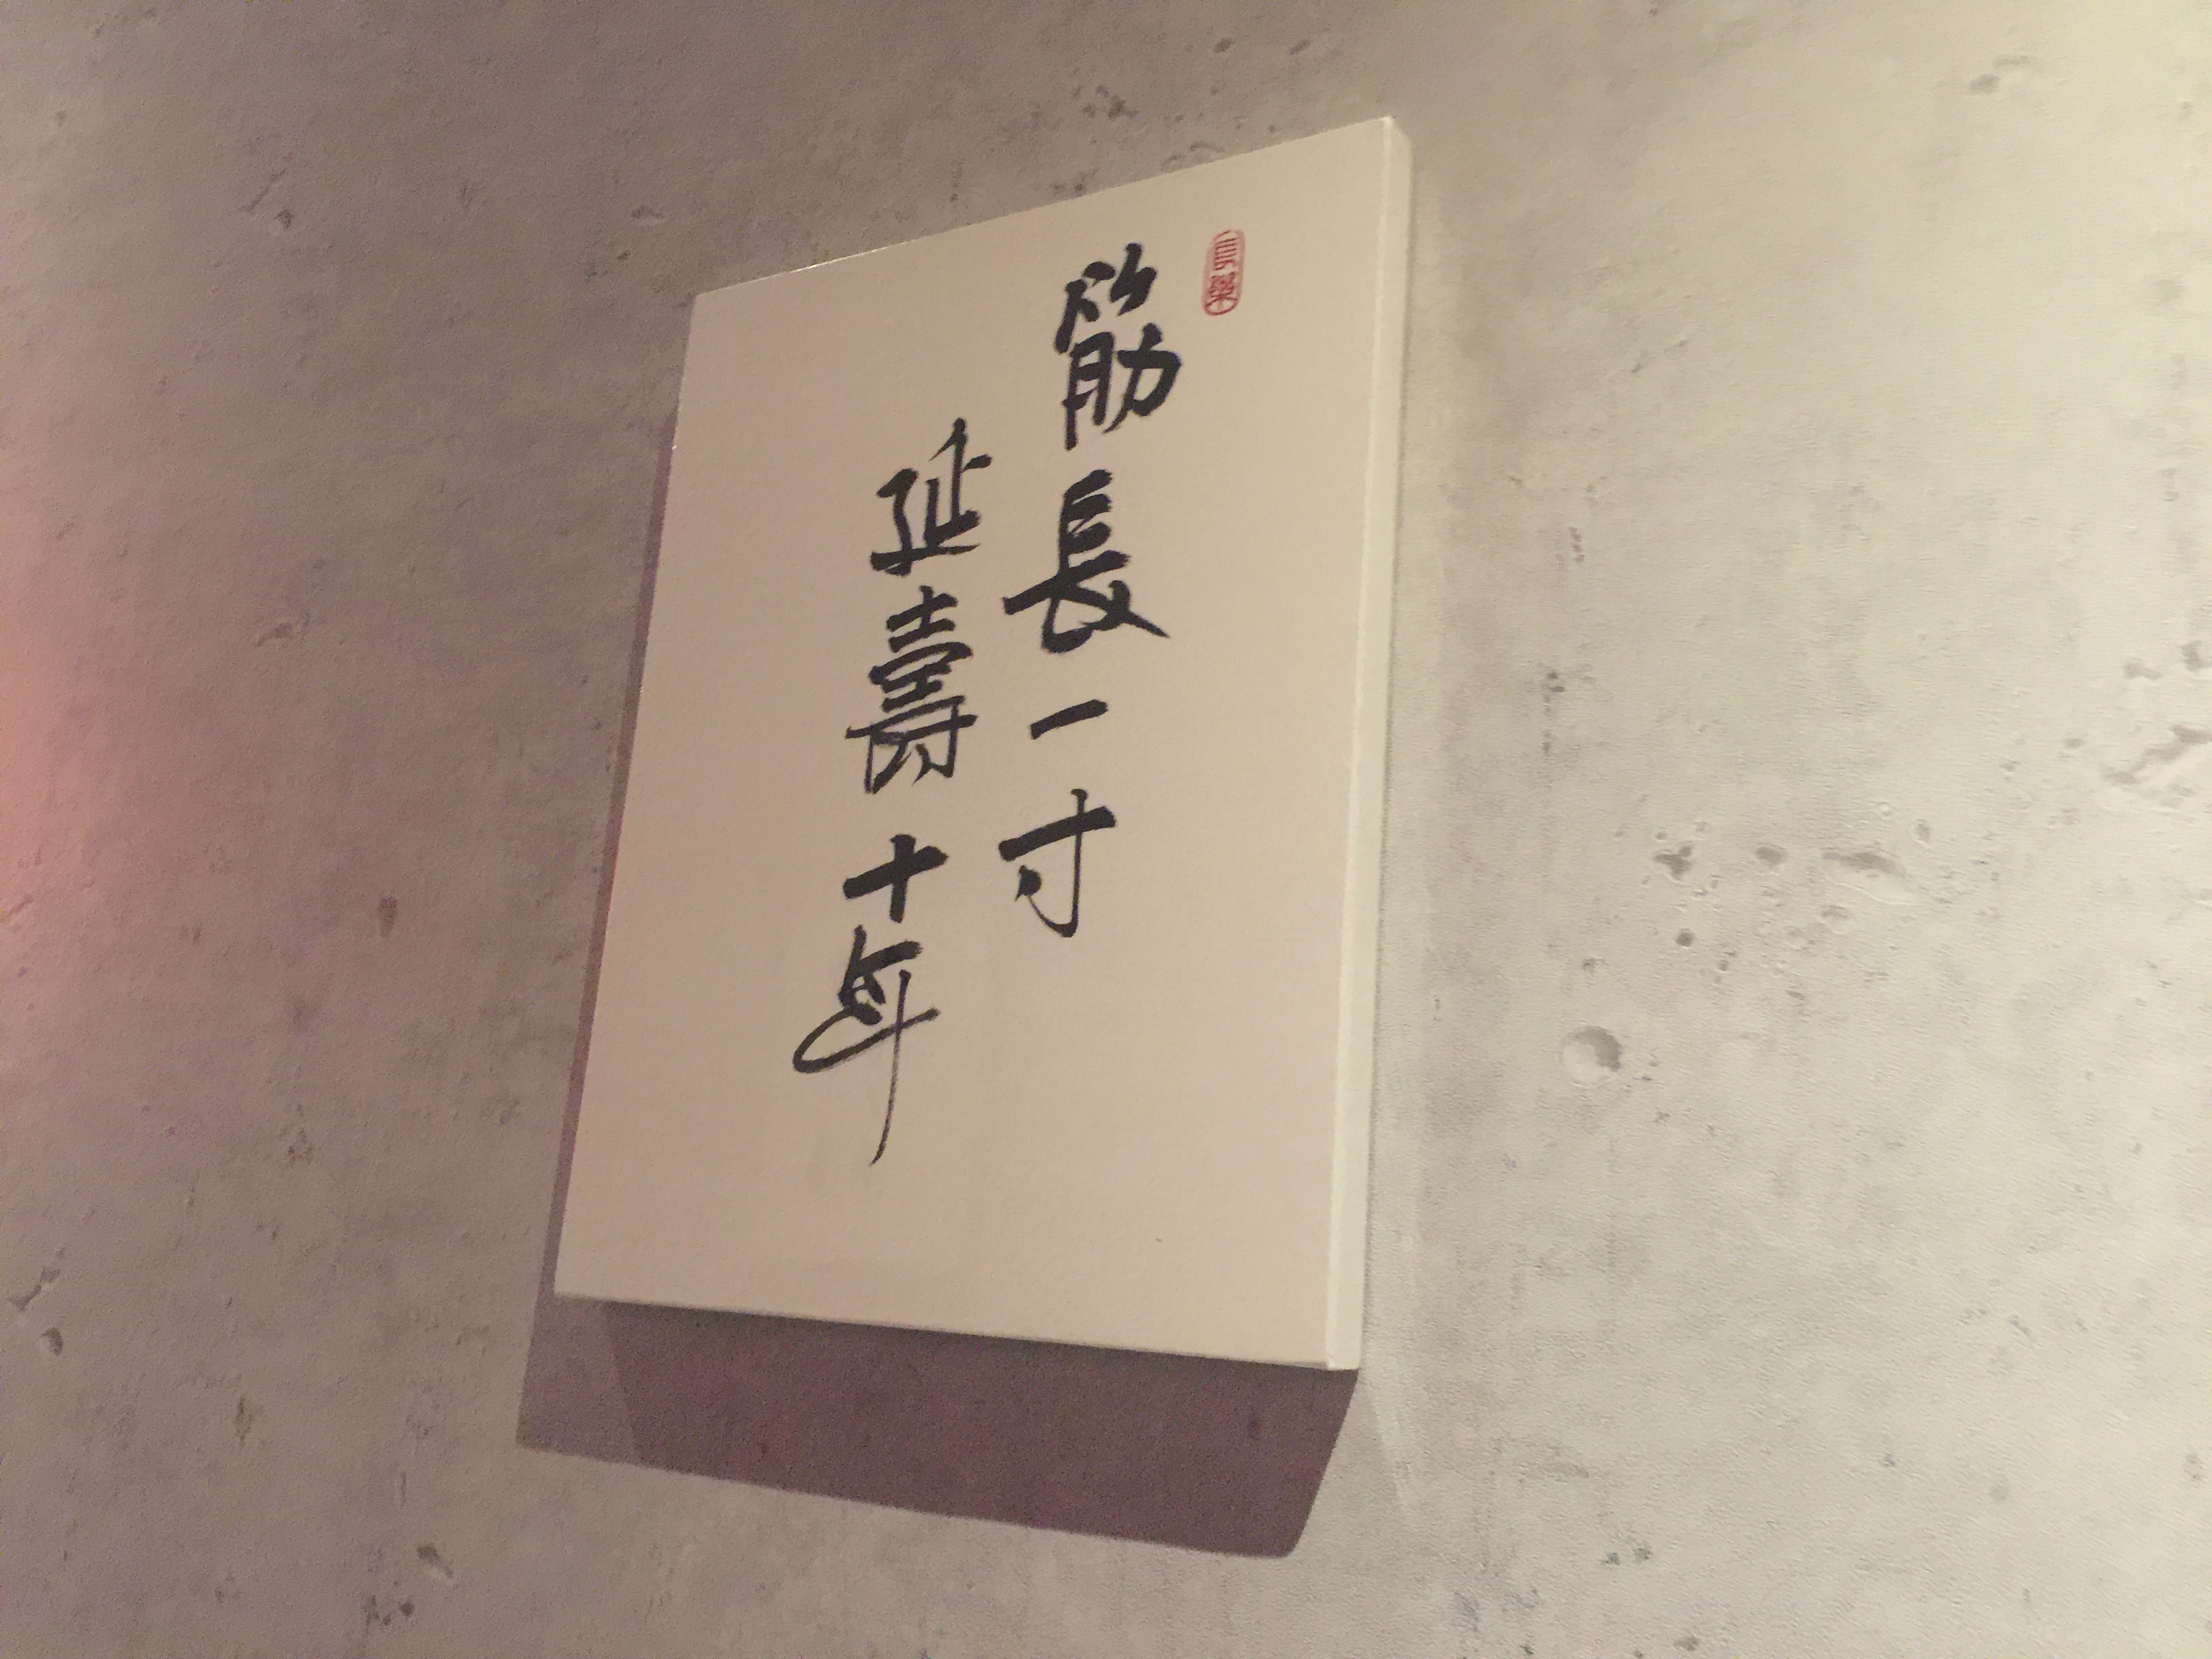 筋長一寸
延壽十年